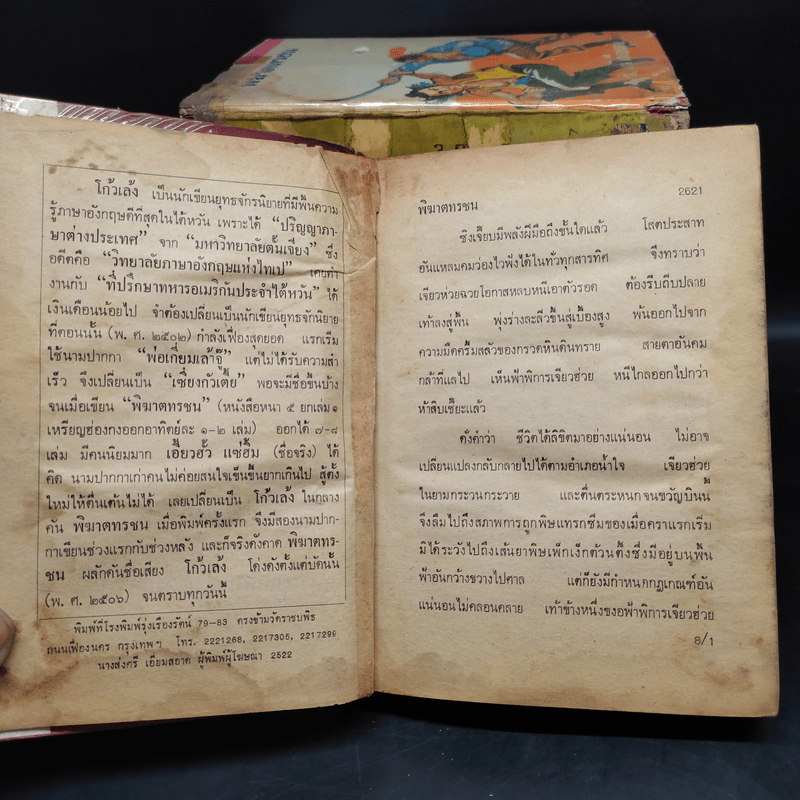 โก้วเล้ง เป็นนักเขียนยุทธจักรนิยายที่มีพื้นความ
รู้ภาษาอังกฤษดีที่สุดในไต้หวัน เพราะได้ “ปริญญาภา-
ษาต่างประเทศ” จาก “มหาวิทยาลัยตั้มเจียง” ซึ่ง
อดีตคือ “วิทยาลัยภาษาอังกฤษแห่งไทเป” เคยทำ
งานกับ “ที่ปรึกษาทหารอเมริกันประจำไต้หวัน” ได้
เงินเดือนน้อยไป จำต้องเปลี่ยนเป็นนักเขียนยุทธจักรนิยาย
ที่ตอนนั้น (พ. ศ. ๒๕๐๒) กำลังเฟื่องสุดยอด แรกเริ่ม
ใช้นามปากกา “พ่อเกี่ยมเล้าจู๊” แต่ไม่ได้รับความสำ
เร็จ จึงเปลี่ยนเป็น “เซี่ยงกัวเตี้ย” พอจะมีชื่อขึ้นบ้าง
จนเมื่อเขียน “พิฆาตทรชน” (หนังสือหนา ๕ ยกเล่ม ๑
เหรียญฮ่องกงออกอาทิตย์ละ ๑-๒ เล่ม) ออกได้ ๗-๘
เล่ม มีคนนิยมมาก เอี้ยวฮั้ว แซ่ฮิ้ม (ชื่อจริง) ได้
คิด นามปากกาเก่าคนไม่ค่อยสนใจเข็นขึ้นยากเกินไป สู้ตั้ง
ใหม่ให้ตื่นเต้นไม่ได้ เลยเปลี่ยนเป็น โก้วเล้ง ในกลาง
คัน พิฆาตทรชน เมื่อพิมพ์ครั้งแรก จึงมีสองนามปาก-
กาเขียนช่วงแรกกับช่วงหลัง และก็จริงดังคาด พิฆาตทร-
ชน ผลักดันชื่อเสียง โก้วเล้ง โด่งดังตั้งแต่บัดนั้น
(พ. ศ. ๒๕๐๖) จนตราบทุกวันนี้
พิมพ์ที่โรงพิมพ์รุ่งเรืองรัตน์ 79-83 ตรงข้ามวัดราชบพิธ
ถนนเฟื่องนคร กรุงเทพฯ โทร. 2221268, 2217305, 2217299
นางส่งศรี เอี่ยมสอาด ผู้พิมพ์ผู้โฆษณา 2522
พิฆาตทรชน 2621
ซิงเจี๊ยบมีพลังฝีมือถึงขั้นใดแล้ว โสตประสาท
อันแหลมคมว่องไวฟังได้ในทั่วทุกสารทิศ จึงทราบว่า
เจียวห่วยฉวยโอกาสหลบหนีเอาตัวรอด ต้องรีบถีบปลาย
เท้าลงสู่พื้น พุ่งร่างละลิ่วขึ้นสู่เบื้องสูง พ้นออกไปจาก
ความมืดครึ้มสลัวของกรวดหินดินทราย สายตาอันคม
กล้าที่แลไป เห็นฟ้าพิการเจียวฮ่วย หนีไกลออกไปกว่า
ห้าสิบเชี๊ยะแล้ว
ดังคำว่า ชีวิตได้ลิขิตมาอย่างแน่นอน ไม่อาจ
เปลี่ยนแปลงกลับกลายไปได้ตามอำเภอน้ำใจ เจียวฮ่วย
ในยามกระวนกระวาย และตื่นตระหนกจนขวัญบินนี้
จึงลืมไปถึงสภาพการถูกพิษแทรกซึมของเมื่อคราแรกเริ่ม
มิได้ระวังไปถึงเส้นยาพิษเพ็กเง็กต้วนตึ้งซึ่งมีอยู่บนพื้น
ฟ้าอันกว้างขวางไปศาล แต่ก็ยังมีกำหนดกฎเกณฑ์อัน
แน่นอนไม่คลอนคลาย เท้าข้างหนึ่งของฟ้าพิการเจียวฮ่วย
8/1